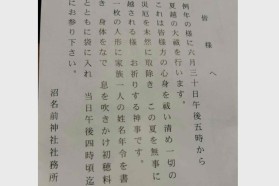 皆様へ
例年の様に六月三十日午後五時から
夏越の大祓を行います。
これは皆様方の心身を祓い清め一切の
災厄を未然に取除き この夏を無事に
越される様 お祈りする神事です。
一枚の人形に家族一人の姓名年令を書
き 身体をなで 息を吹きかけ初穂料
とともに袋に入れ 当日午後四時頃迄
にお参り下さい。
沼名前神社社務所